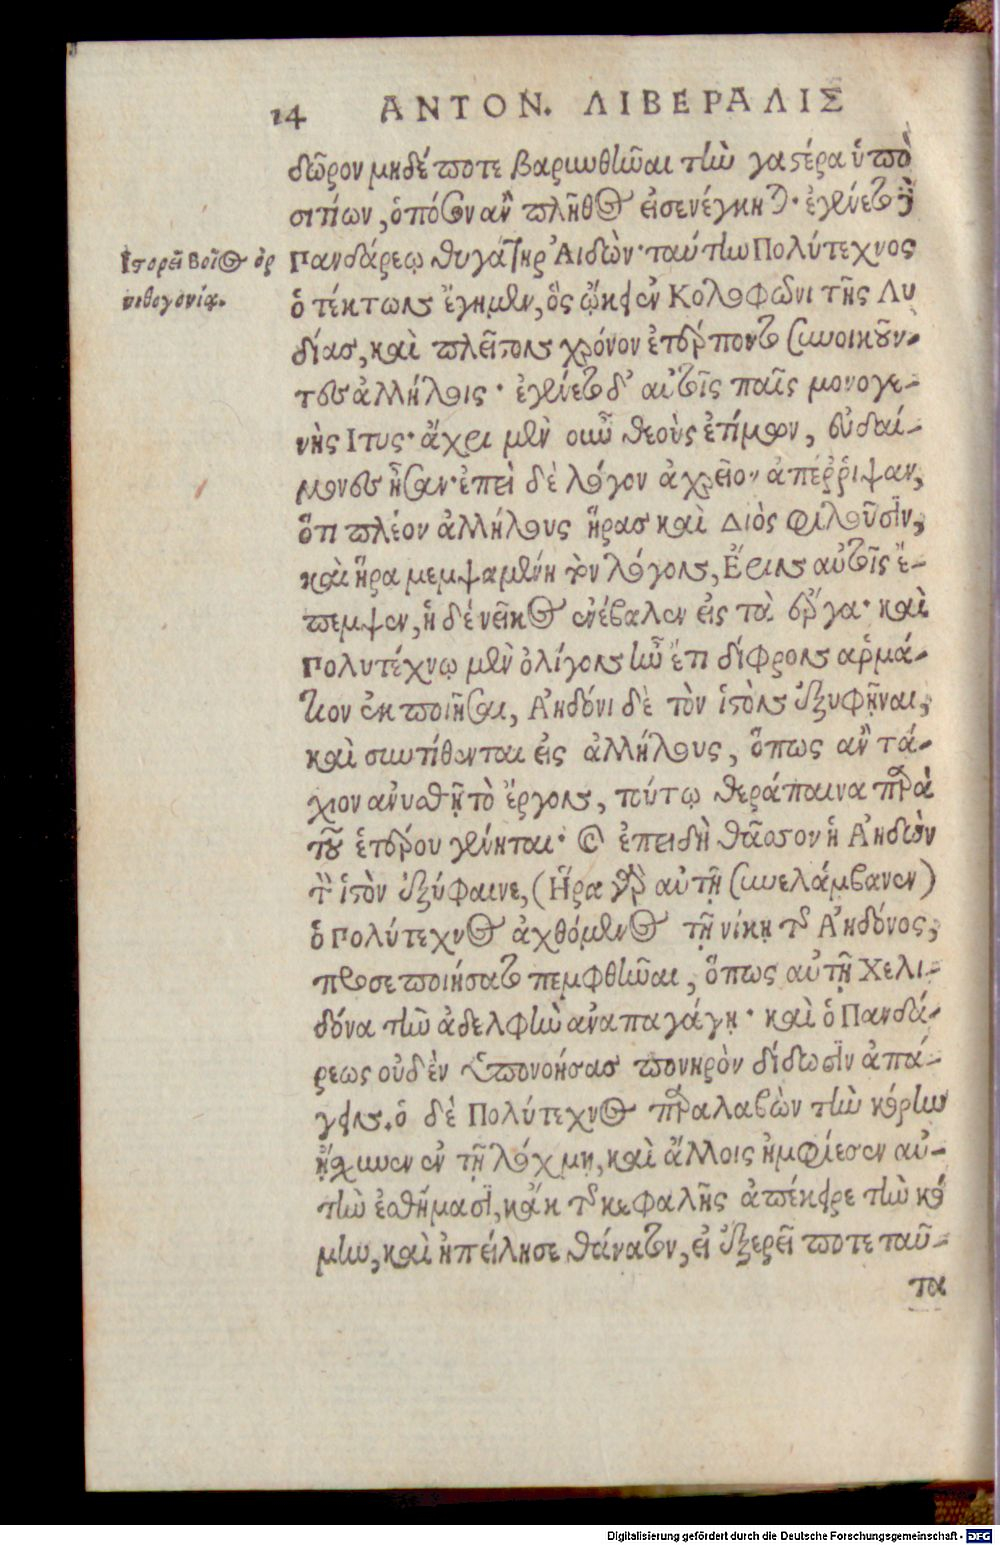 14 ΑΝΤΟΝ. ΛΙΒΕΡΑΛΙΣ
δῶρον μηδέποτε βαρυνθῆναι τὴν γαστέρα ὑπὸ
σιτίων, ὁπόσον ἂν πλῆθος εἰσενέγκηται· ἐγένετο δὲ
Ἱστορεῖ Βοῖος ὀρ
νιθογονίᾳ.
Πανδάρεῳ θυγάτηρ Ἀιδών· ταύτην Πολύτεχνος
ὁ τέκτων ἔγημεν, ὃς ᾤκει ἐν Κολοφῶνι τῆς Λυ
δίας, καὶ πλεῖστον χρόνον ἐτέρποντο συνοικοῦν-
τες ἀλλήλοις· ἐγένετο δ' αὐτοῖς παῖς μονογε-
νὴς Ιτυς· ἄχρι μὲν οὖν θεοὺς ἐτίμων, εὐδαί-
μονες ἦσαν· ἐπεὶ δὲ λόγον ἀχρεῖον ἀπέῤῥιψαν,
ὅτι πλέον ἀλλήλους ἥρας καὶ Διὸς φιλοῦσιν,
καὶ ἥρα μεμψαμένη τὸν λόγον, Ἔριν αὐτοῖς ἔ-
πεμψεν, ἡ δὲ νεῖκος ἐνέβαλεν εἰς τὰ ἔργα· καὶ
Πολυτέχνῳ μὲν ὀλίγον ἦν ἔτι δίφρον ἁρμά-
τειον ἐκποιῆσαι, Ἀηδόνι δὲ τὸν ἱστὸν ἐξυφῆναι,
καὶ συντίθενται εἰς ἀλλήλους, ὅπως ἂν τά-
χιον ἀνυσθῇ τὸ ἔργον, τούτῳ θεράπαινα παρὰ
τοῦ ἑτέρου γένηται· καὶ ἐπειδὴ θᾶσσον ἡ Ἀηδὼν
τὸν ἱστὸν ἐξύφαινε, (Ἥρα γὰρ αὐτῇ συνελάμβανεν)
ὁ Πολύτεχνος ἀχθόμενος τῇ νίκῃ τῆς Ἀηδόνος,
προσεποιήσατο πεμφθῆναι, ὅπως αὐτῇ Χελι-
δόνα τὴν ἀδελφὴν ἀναπαγάγῃ· καὶ ὁ Πανδά-
ρεως οὐδὲν ὑπονοήσας πονηρὸν δίδωσιν ἀπά-
γειν. ὁ δὲ Πολύτεχνος παραλαβὼν τὴν κόρην
ᾔσχυνεν ἐν τῇ λόχμῃ, καὶ ἄλλοις ἠμφίεσεν αὐ-
τὴν ἐσθήμασι, κἀκ τῆς κεφαλῆς ἀπέκειρε τὴν κό
μην, καὶ ἠπείλησε θάνατον, εἰ ἐξερεῖ ποτε ταῦ-
τα
Digitalisierung gefördert durch die Deutsche Forschungsgemeinschaft - DFG